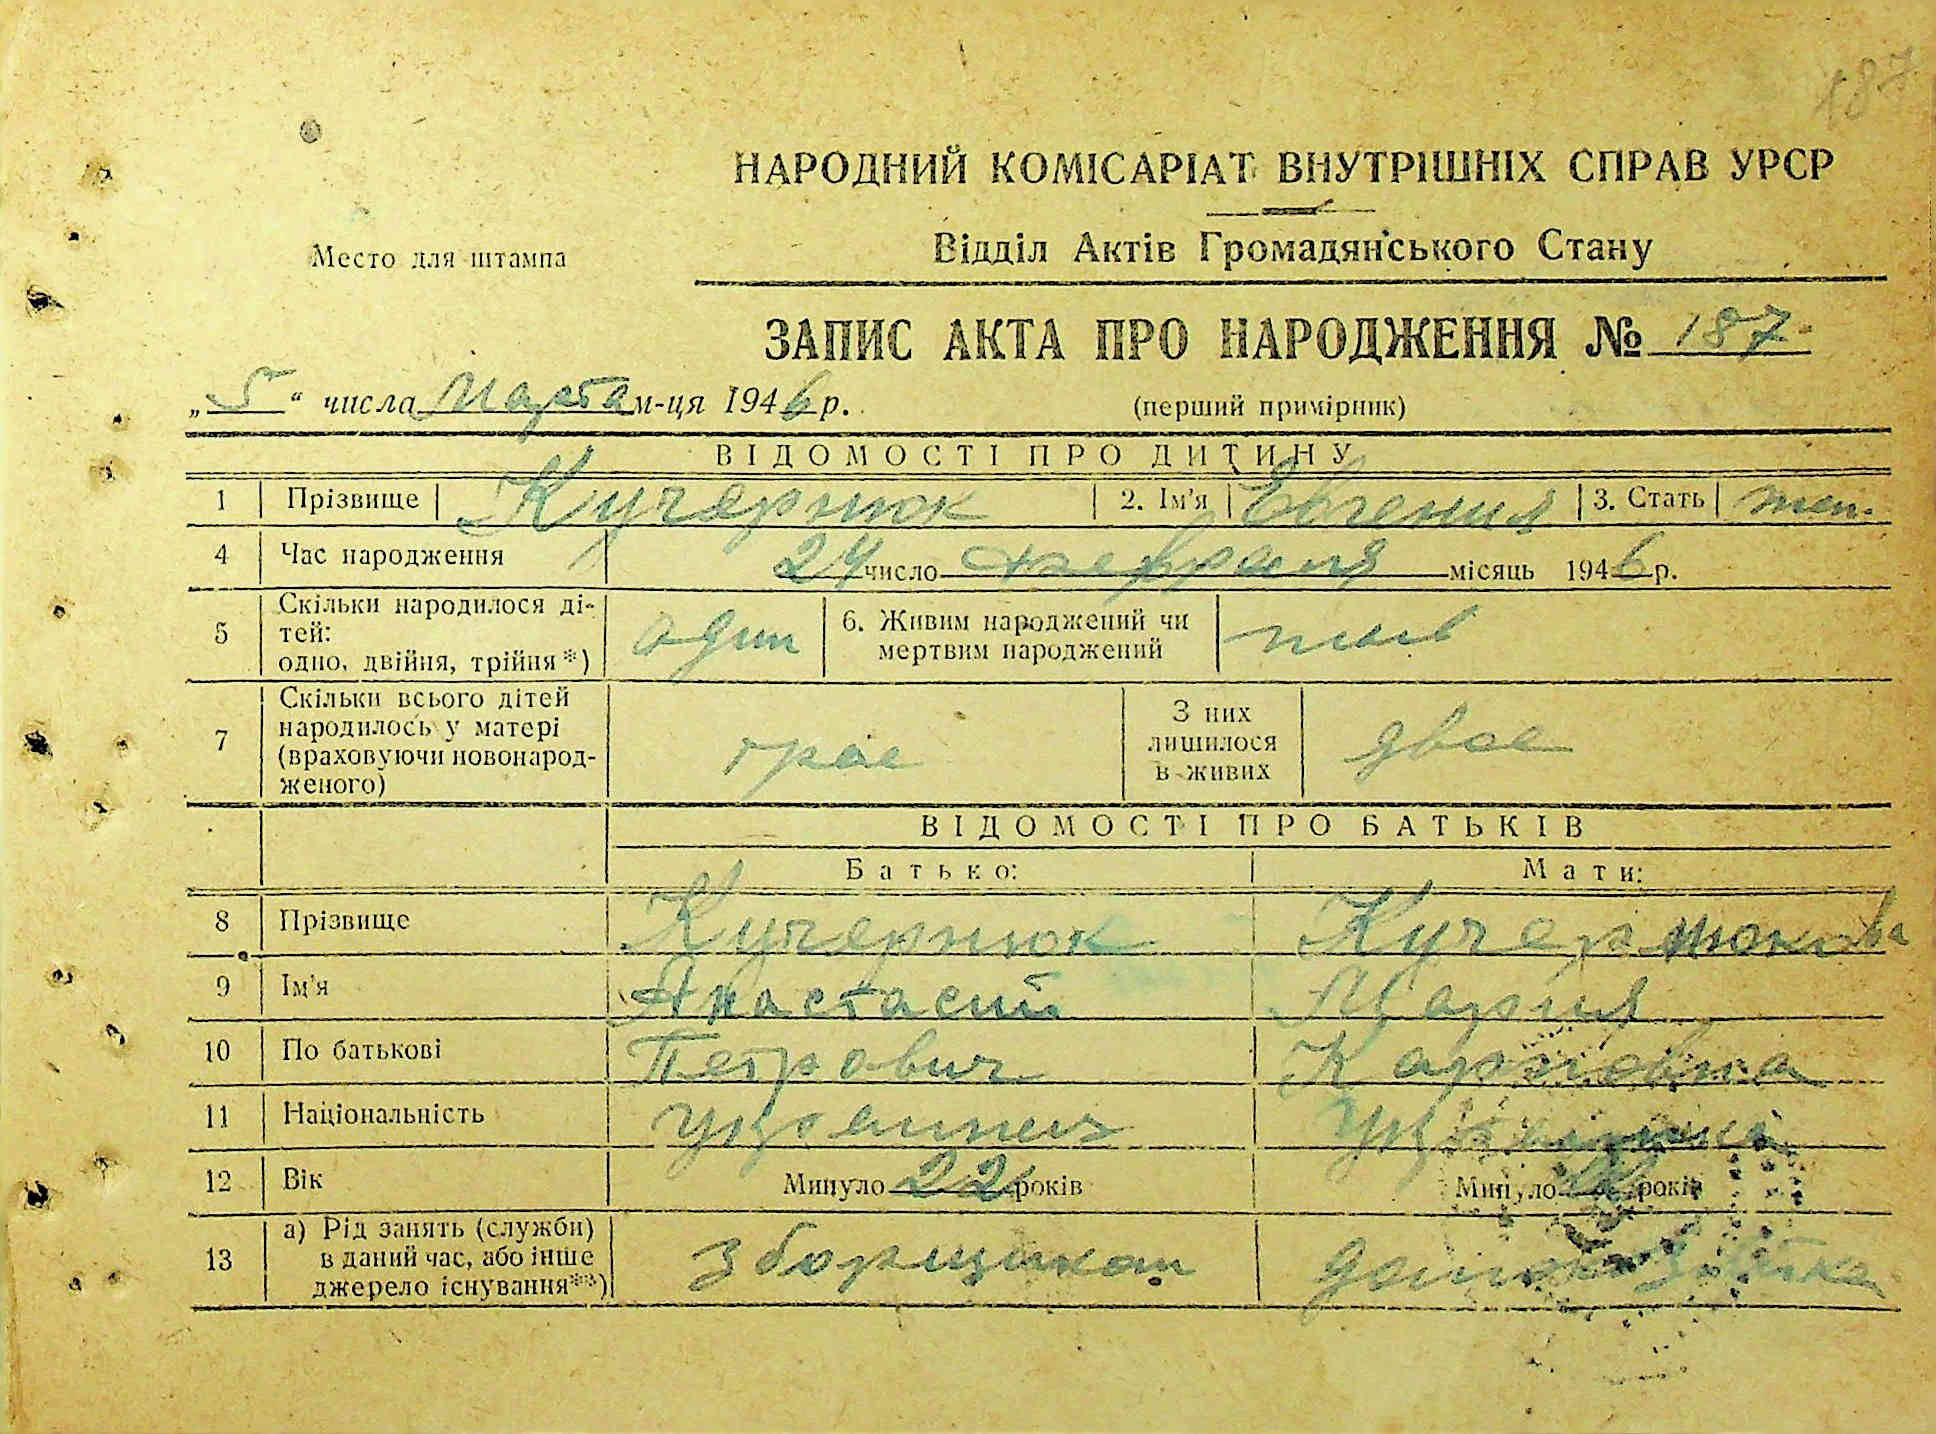 187
НАРОДНИЙ КОМІСАРІАТ ВНУТРІШНІХ СПРАВ УРСР
Место для штампа
Відділ Актів Громадянського Стану
ЗАПИС АКТА ПРО НАРОДЖЕННЯ № 187
„5“ числа Марта м-ця 1946 р.
(перший примірник)
ВІДОМОСТІ ПРО ДИТИНУ
1 Прізвище Кучернюк 2. Ім'я Евгения 3. Стать жен.
4 Час народження 24 число февраля місяць 1946 р.
5 Скільки народилося ді-
тей:
одно, двійня, трійня*) один
6. Живим народжений чи
мертвим народжений жив
7 Скільки всього дітей
народилось у матері
(враховуючи новонарод-
женого) трое
З них
лишилося
в живих двое
ВІДОМОСТІ ПРО БАТЬКІВ
Батько: Мати:
8 Прізвище Кучернюк Кучернюкова
9 Ім'я Анастасий Мария
10 По батькові Петрович Карповна
11 Національність Украинец Украинка
12 Вік Минуло 22 років Минуло років
13 а) Рід занять (служби)
в даний час, або інше
джерело існування**)